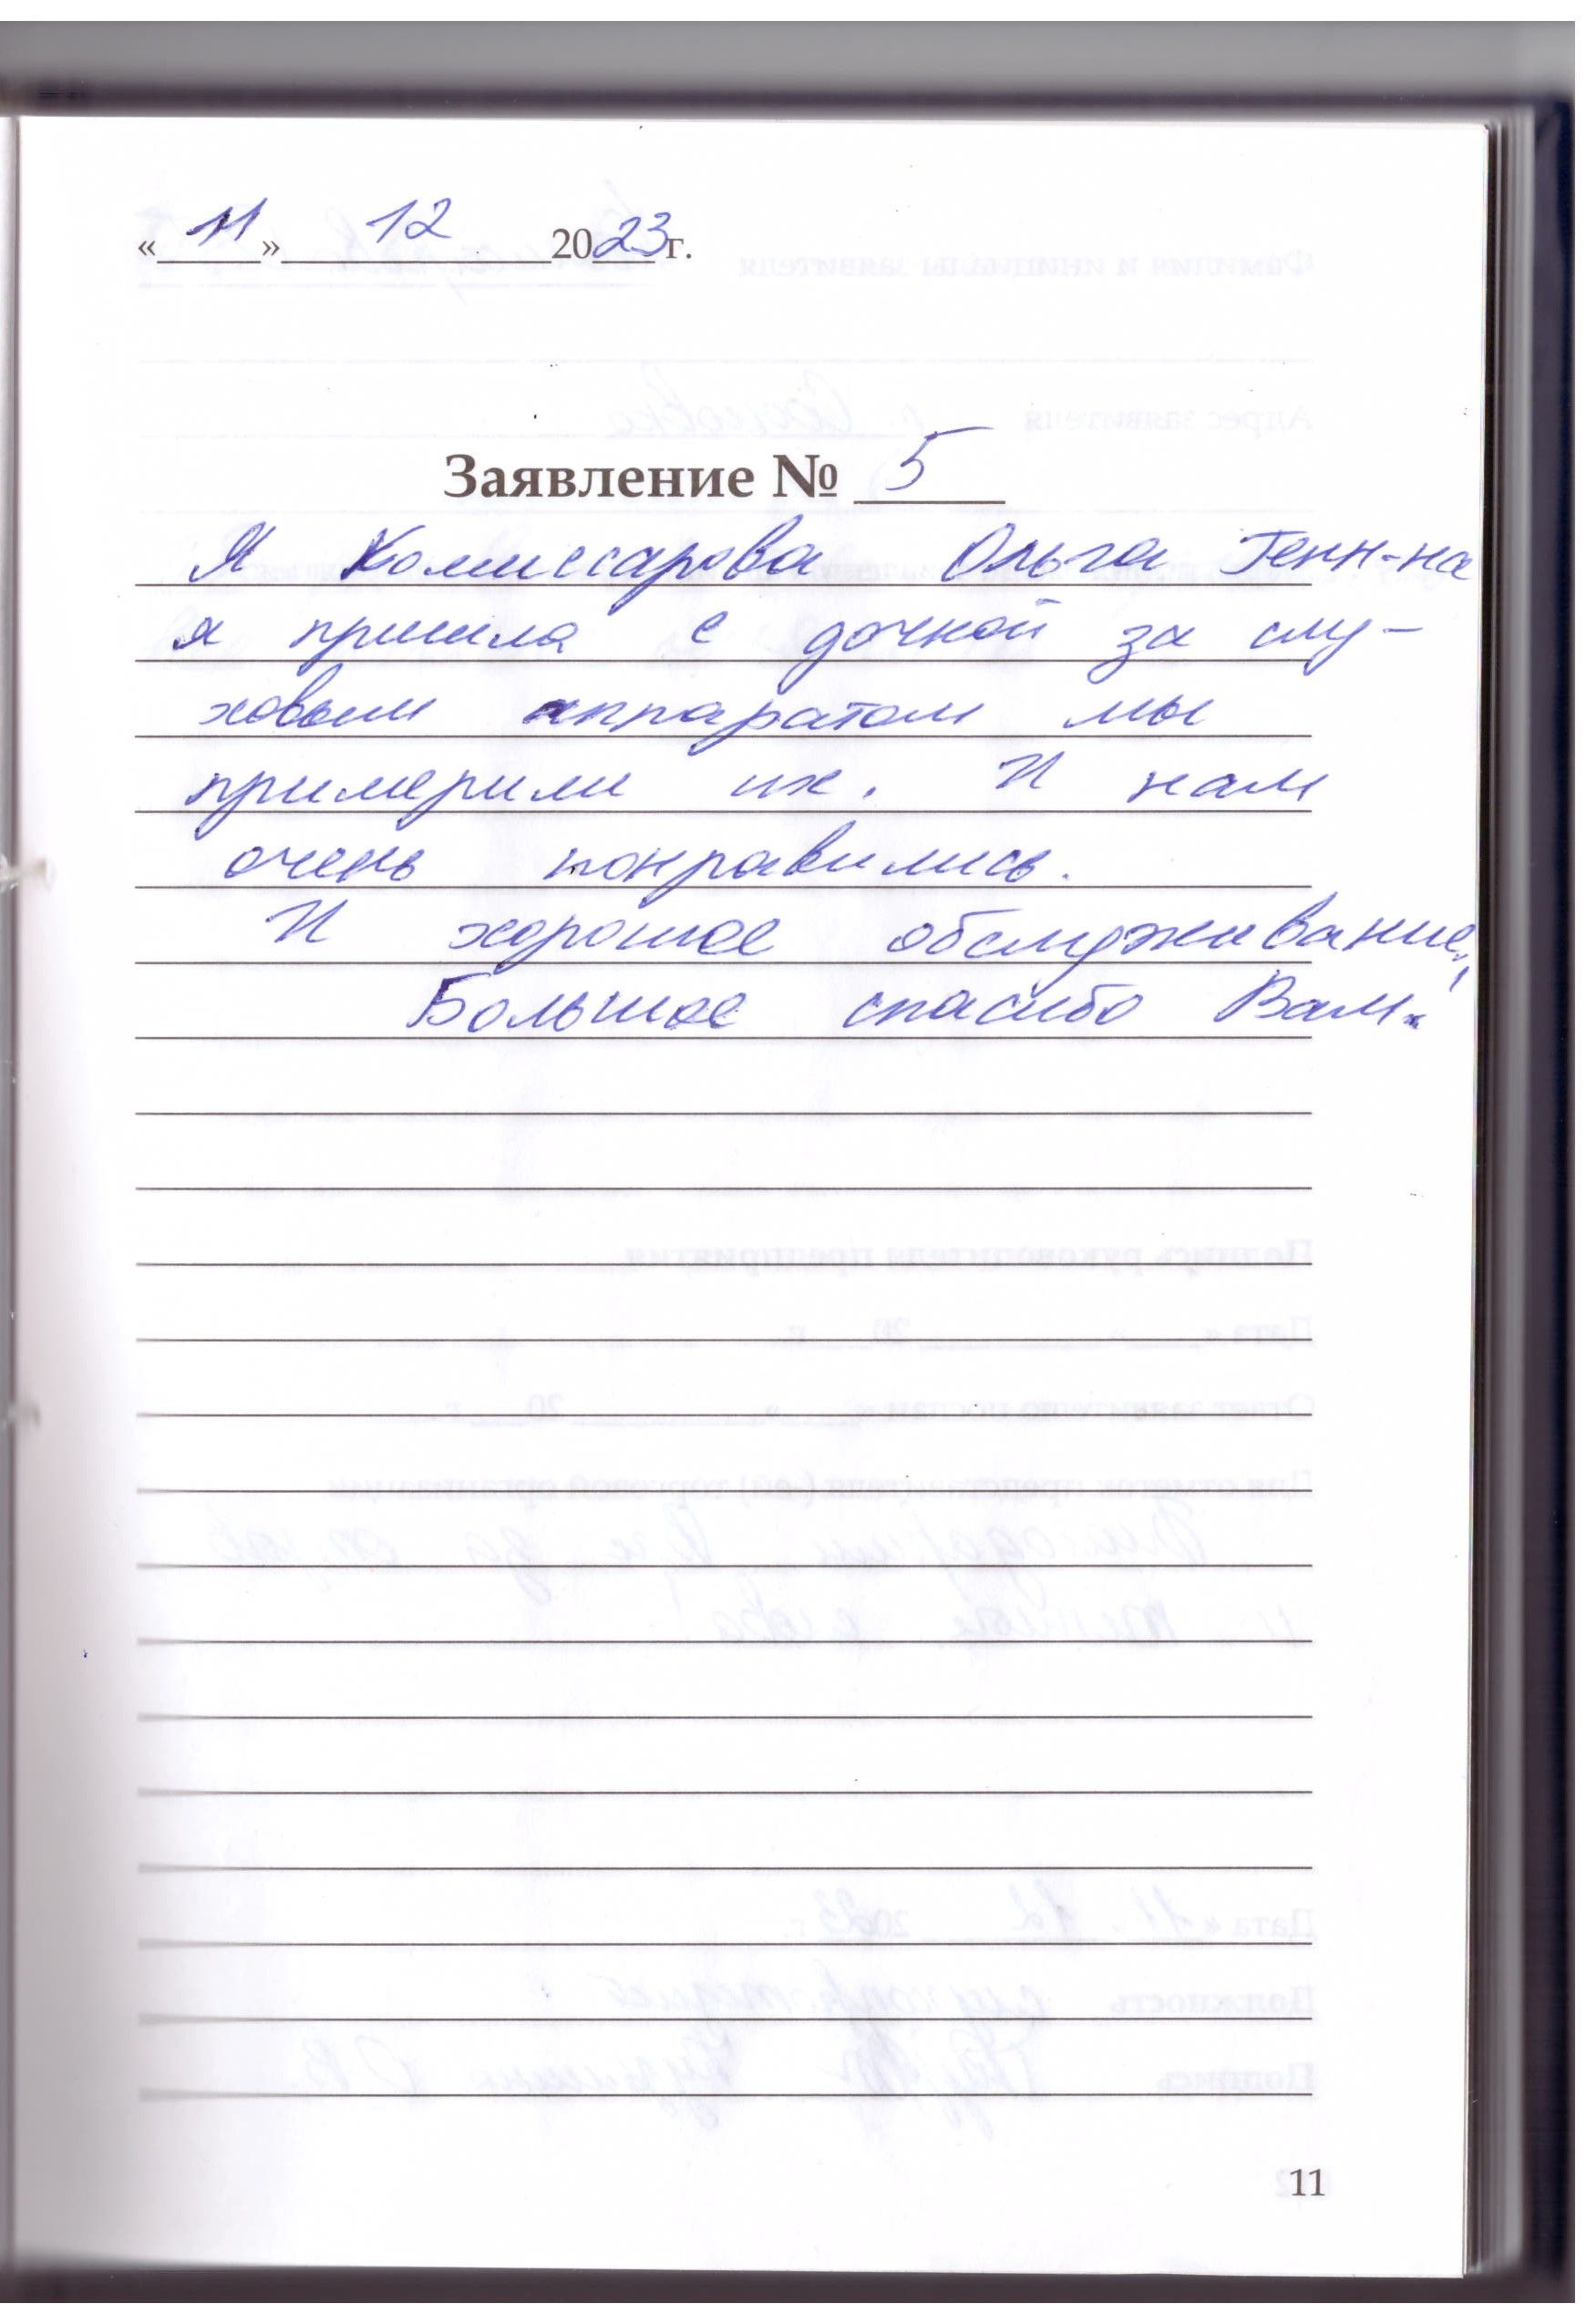 «11» 12 2023г.
Заявление № 5
Я Комиссарова Ольга Генн-на
я пришла с дочкой за слу-
ховым аппаратом мы
примерили их. И нам
очень понравились.
И хорошое обслуживание,
Большое спасибо Вам!
11